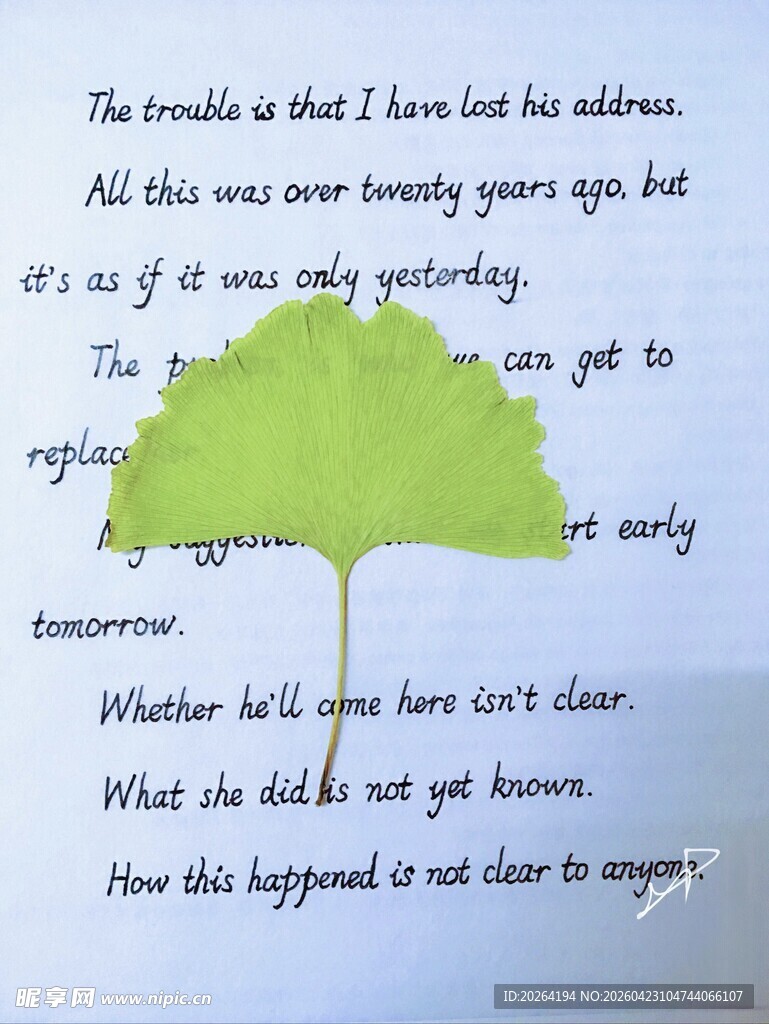 The trouble is that I have lost his address.
All this was over twenty years ago, but
it's as if it was only yesterday.
The can get to
replace
My suggestion early
tomorrow.
Whether he'll come here isn't clear.
What she did is not yet known.
How this happened is not clear to anyone.
昵享网 www.nipic.cn
ID:20264194 NO:20260423104744066107